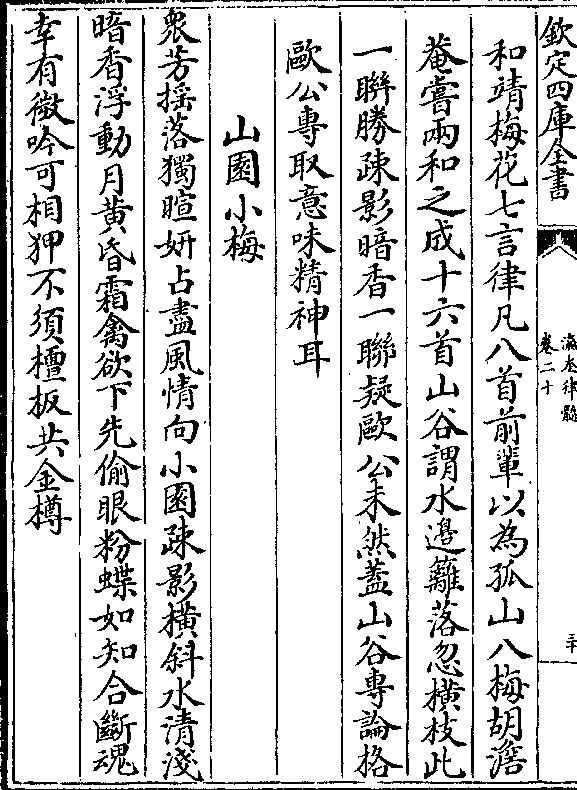 欽定四庫全書
瀛奎律髓
卷二十
三十
和靖梅花七言律凡八首前輩以為孤山八梅胡澹
菴嘗兩和之成十六首山谷謂水邊籬落忽横枝此
一聯勝疎影暗香一聯疑歐公未然葢山谷專論格
歐公專取意味精神耳
山園小梅
衆芳揺落獨暄妍占盡風情向小園疎影横斜水清淺
暗香浮動月黄昏霜禽欲下先偷眼粉蝶如知合斷魂
幸有微吟可相狎不須檀板共金樽